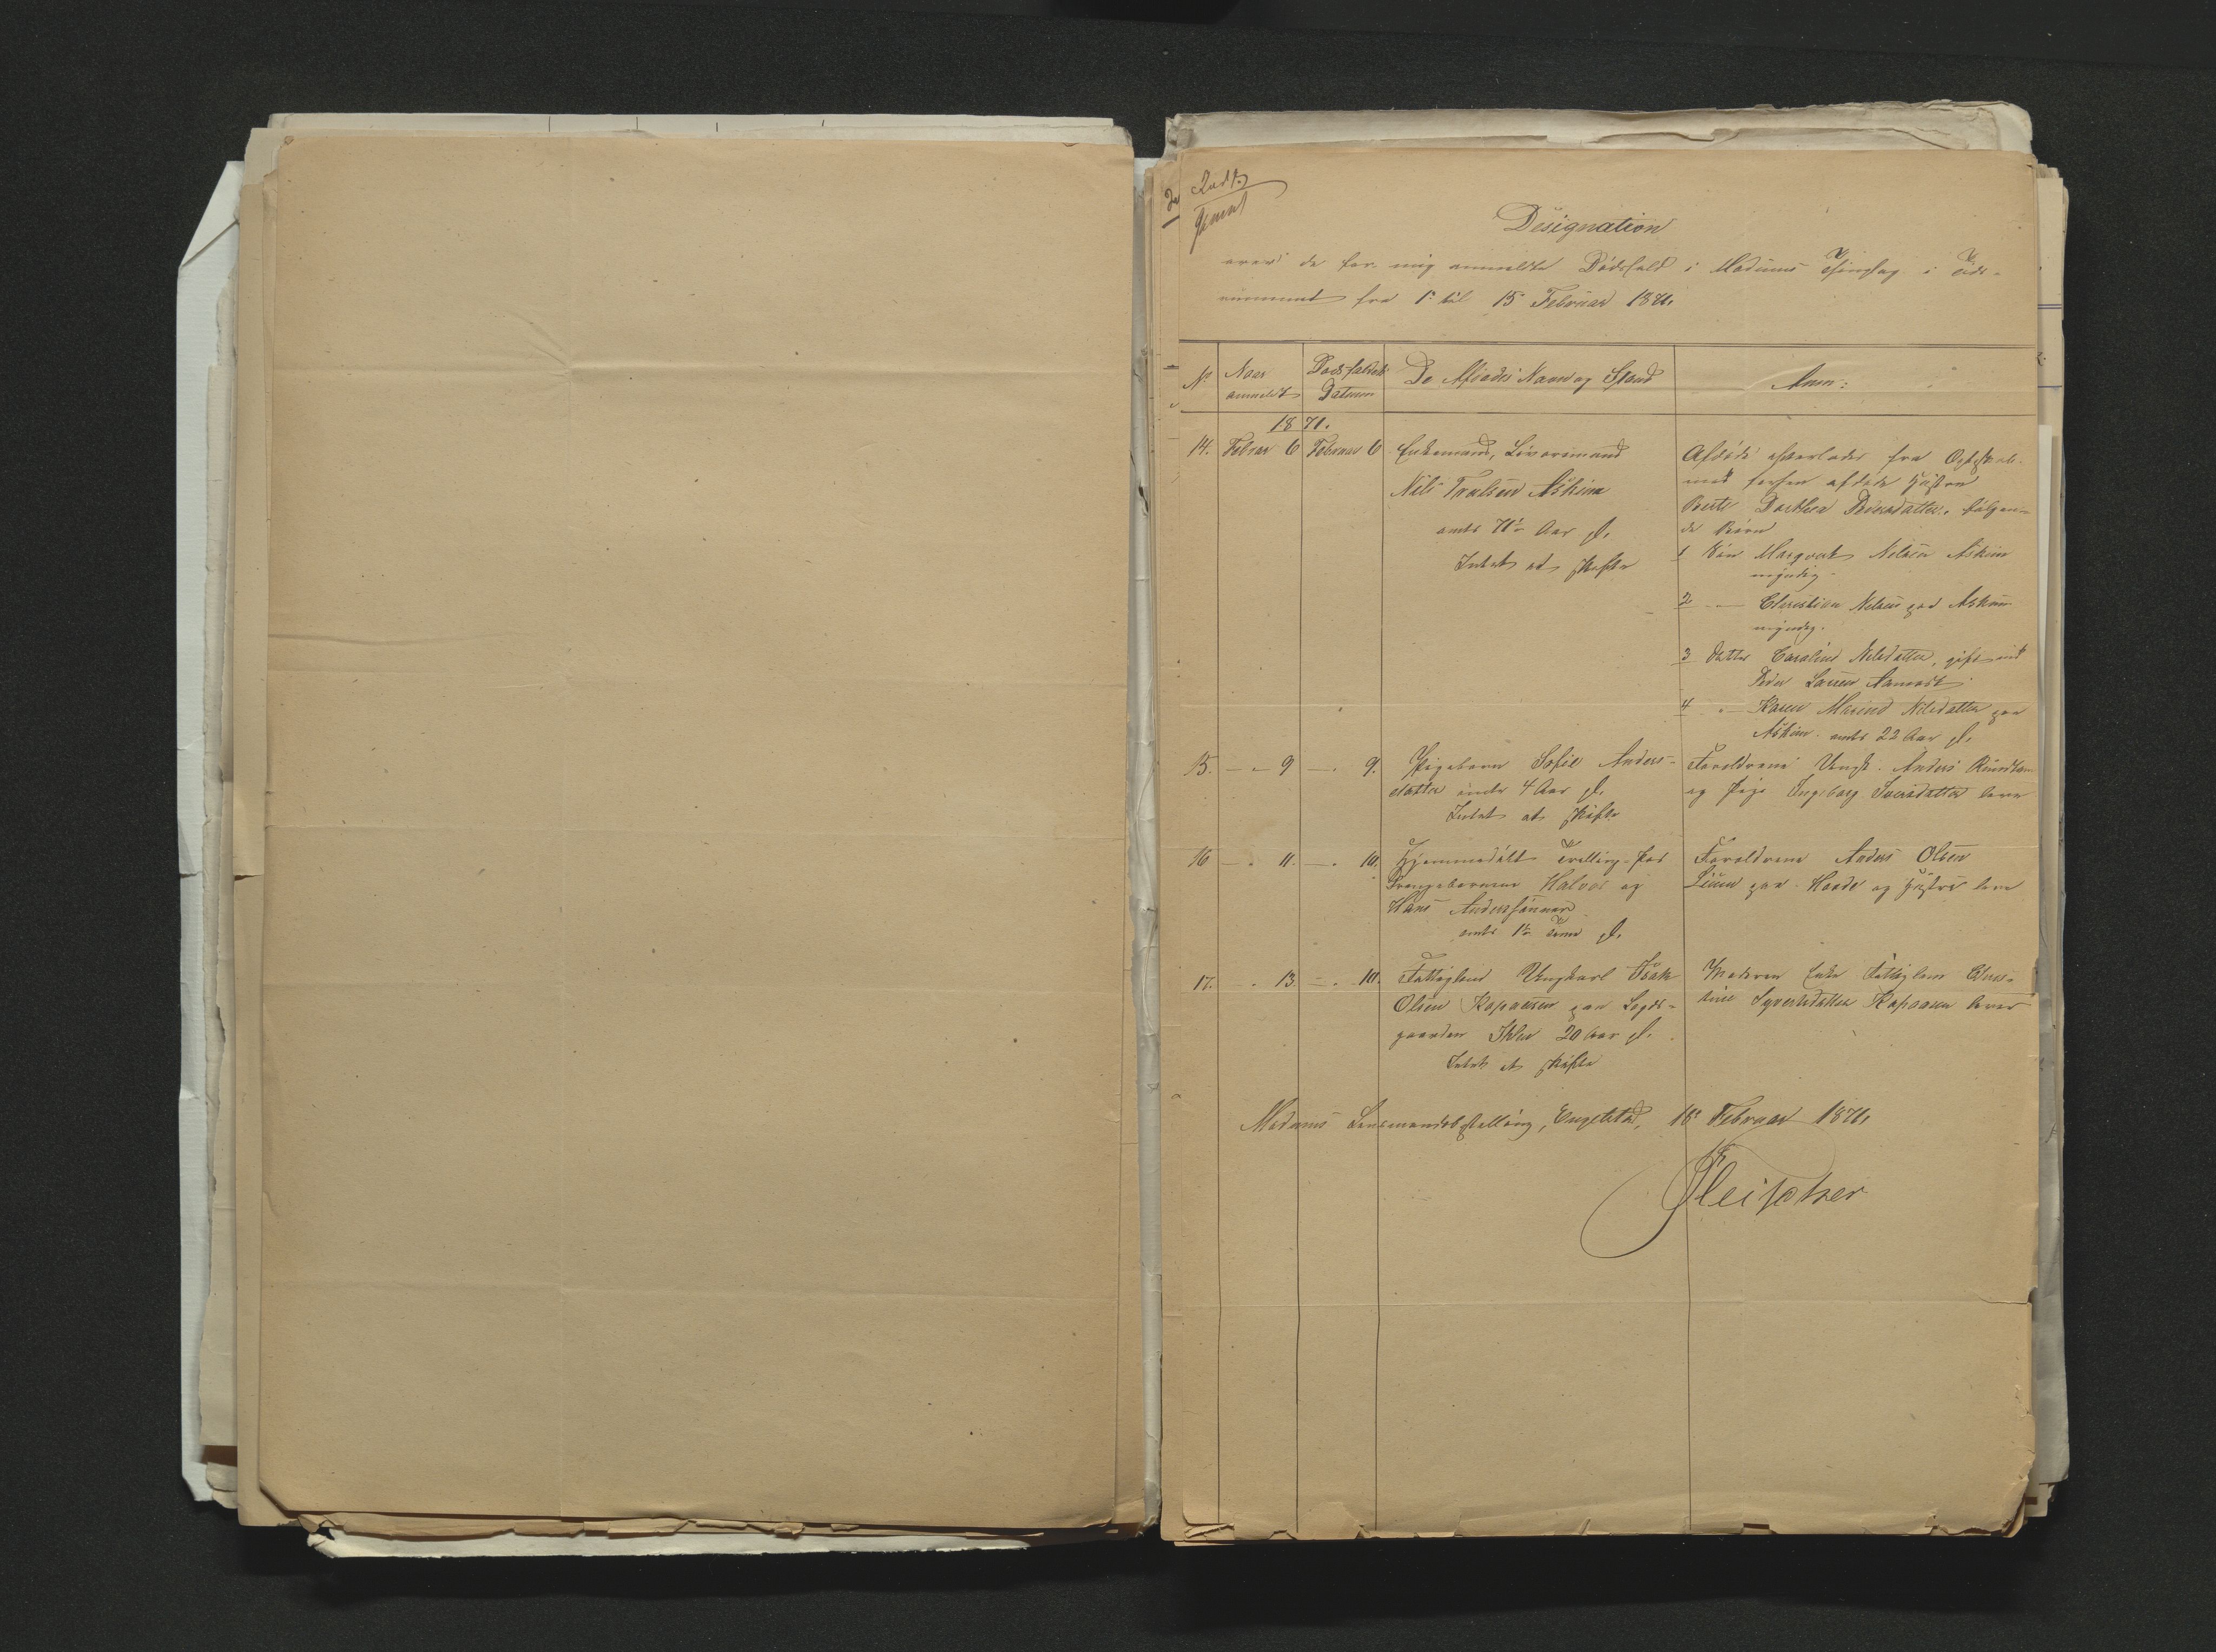 Designation
over de for mig anmeldte Dødsfald i Modums Thinglag i Tids-
rummet fra 1ste til 15de Februar 1871.
No
Naar anmeldt
Dødsfaldets Datum
De Afdødes Navn og Stand
Anm:
1871.
14. Februar 6 Februar 6 Enkemand, Livøremand
Nils Trulsen Askim
omtr 71½ Aar gl.
Intet at skifte
Afdøde efterlader fra Ægteskab
med forhen afdøde Hustru
Berte Dorthea datter, følgen-
de Børn
1 Søn Nelsen Askim
myndig
2 " — Christian Nelsen paa Askim
myndig.
3 Datter Caroline Nilsdatter, gift med
Peder Larsen Aamodt
4 " — Karen Marine Nilsdatter paa
Askim omtr 22 Aar gl.
15. — " 9 — " 9. Pigebarn Sofie Anders-
datter omtr 4 Aar gl.
Intet at skifte
Forældrene Ungk. Anders
og Pige Ingeborg Iversdatter lever
16 — " 11. — " 10. Hjemmedøbt Tvilling-Par
Drengebørnene Halvor og
Hans Anderssønner
omtr 1½ gl.
Forældrene Anders Olsen
paa Hovde og Hustru leve
17. — " 13. — " 10. Fattiglem Ungkarl Isak
Olsen Kopaasen paa Lægds-
gaarden Ihlen 20 Aar gl.
Intet at skifte
Moderen Enke Fattiglem Chris-
tine Syvertsdatter Kopaasen lever
Modums Lensmandsbestilling, Engelstad, 16de Februar 1871.
Fleischer